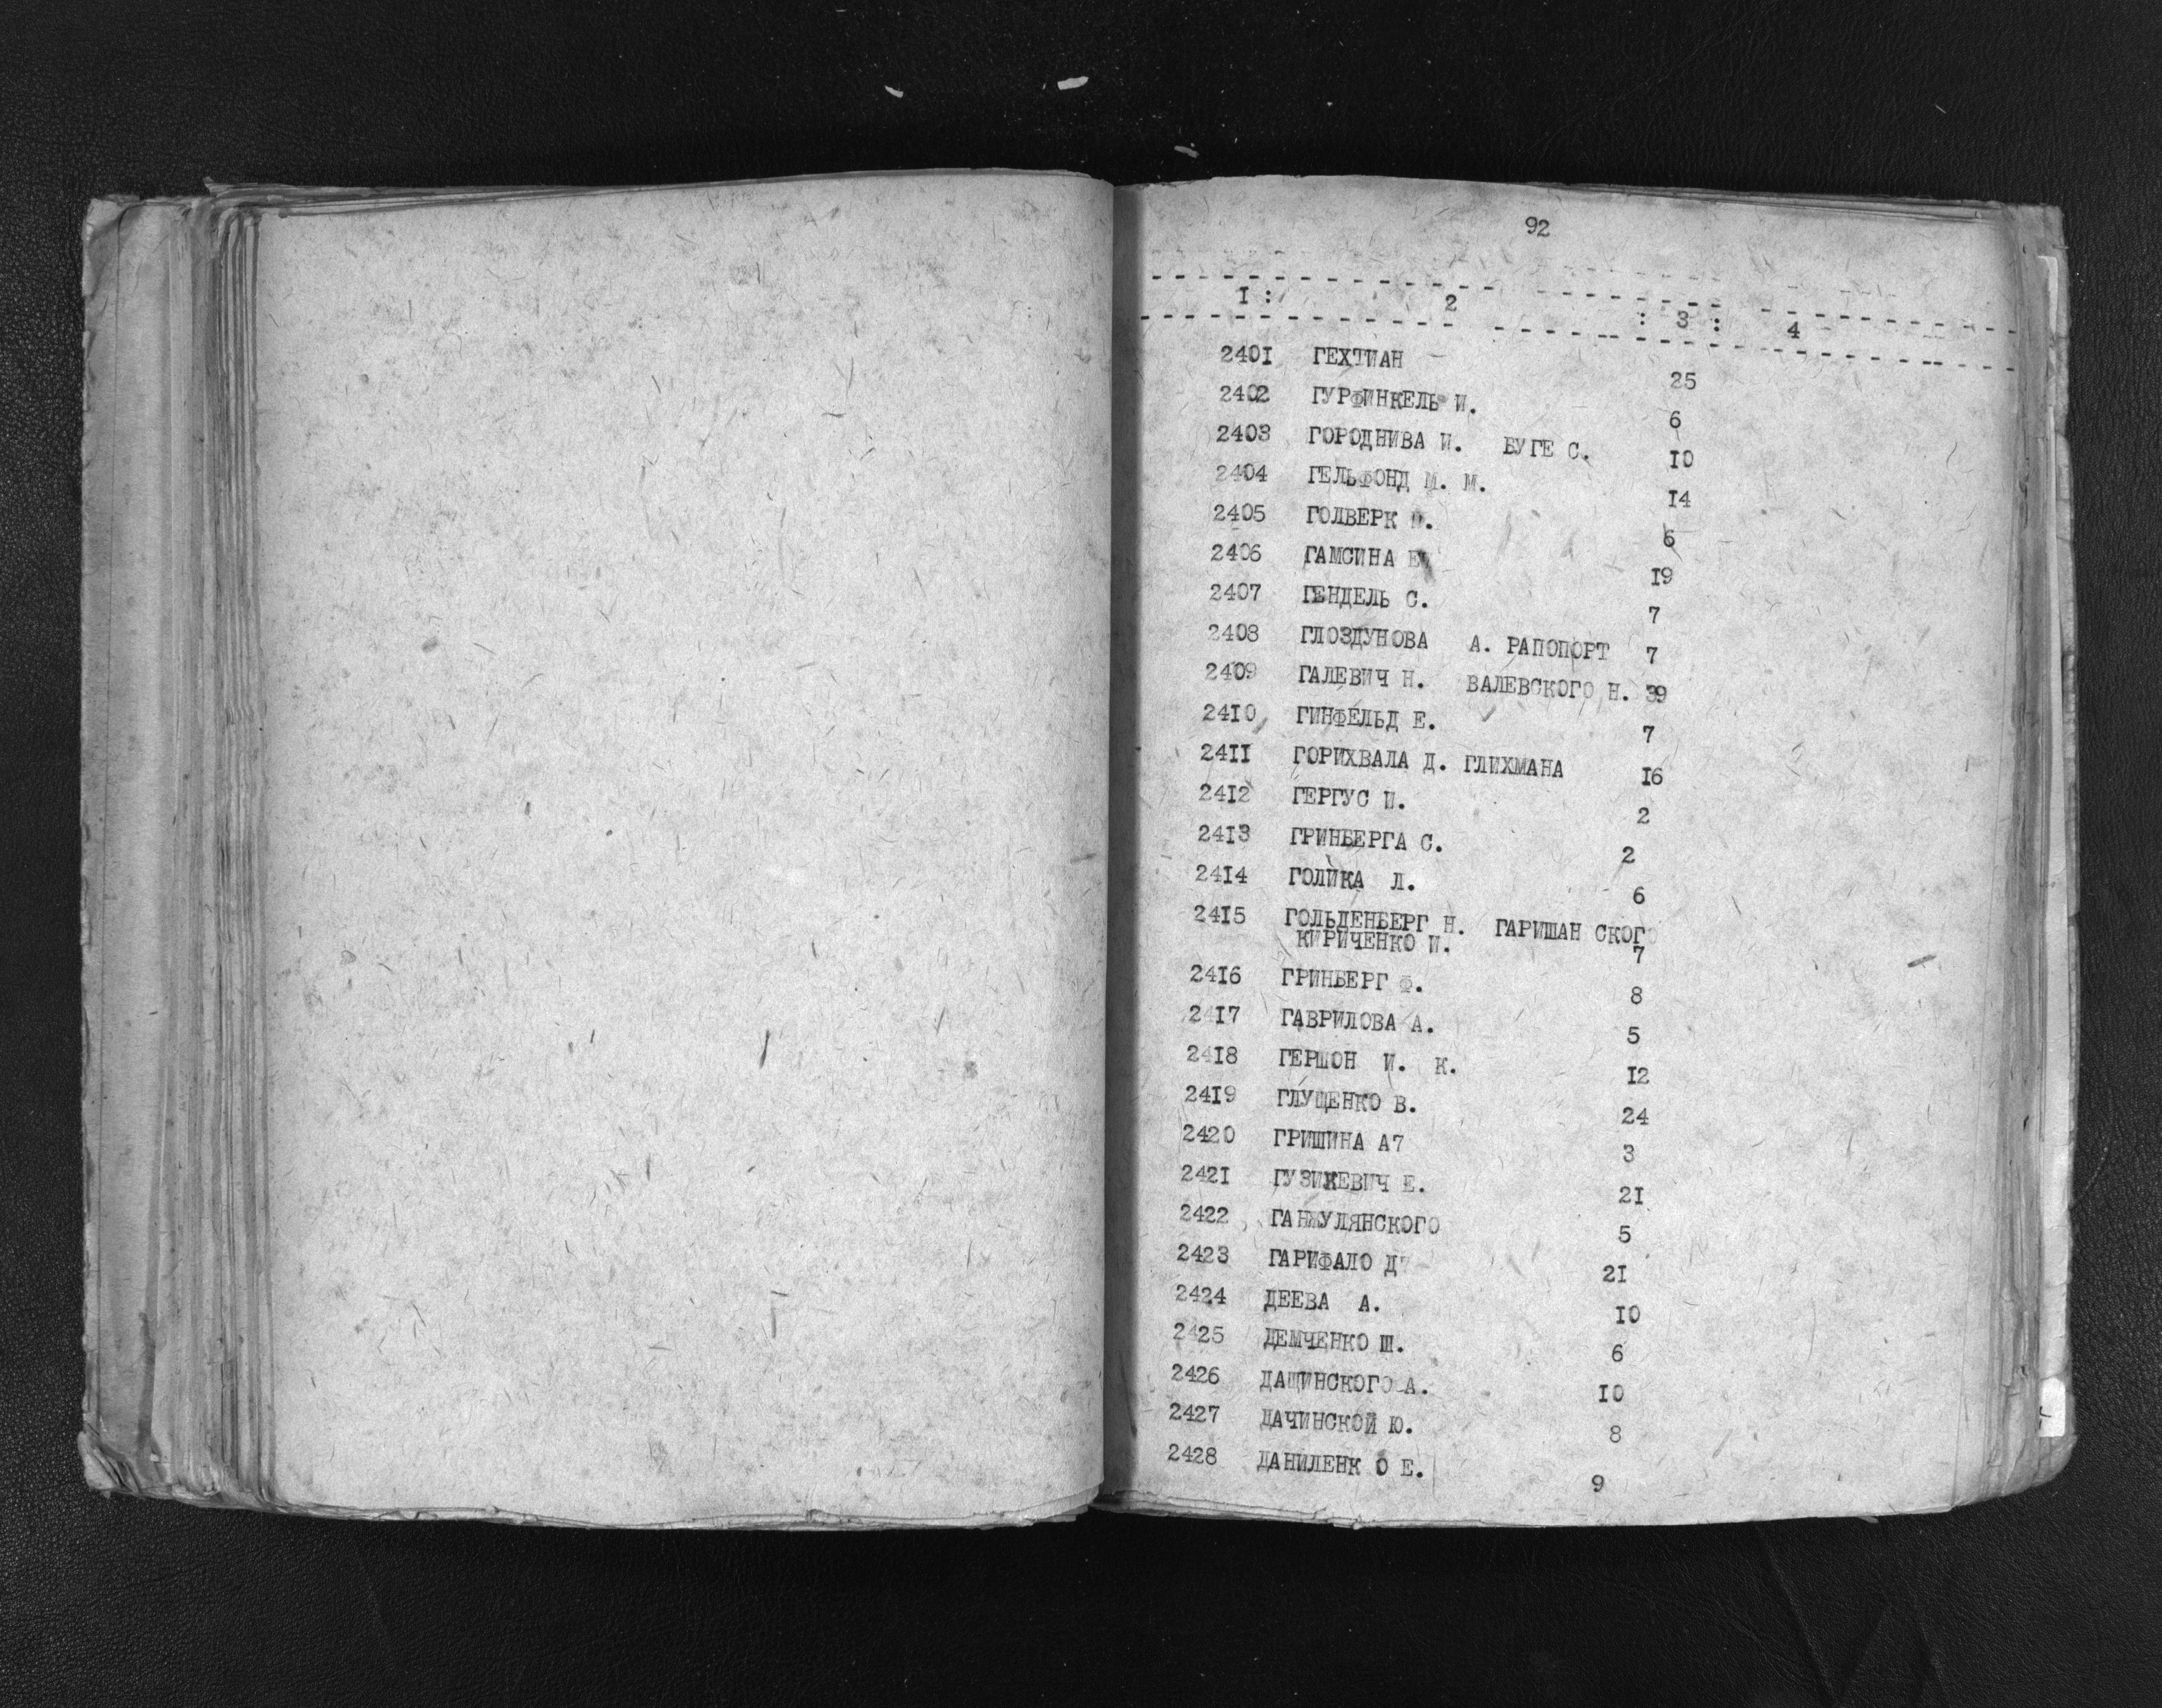 92
1 : 2 : 3 : 4
2401 ГЕХТМАН 25
2402 ГУРФИНКЕЛЬ И. 6
2403 ГОРОДНИВА И. БУГЕ С. 10
2404 ГЕЛЬФОНД М. М. 14
2405 ГОЛВЕРК 6
2406 ГАМСИНА Е 19
2407 ГЕНДЕЛЬ С. 7
2408 ГЛОЗДУНОВА А. РАПОПОРТ 7
2409 ГАЛЕВИЧ Н. ВАЛЕВСКОГО Н. 39
2410 ГИНФЕЛЬД Е. 7
2411 ГОРИХВАЛА Д. ГЛИХМАНА 16
2412 ГЕРГУС И. 2
2413 ГРИНБЕРГА С. 2
2414 ГОЛИКА Л. 6
2415 ГОЛЬДЕНБЕРГ Н. ГАРИШАН СКОГО
КИРИЧЕНКО И. 7
2416 ГРИНБЕРГ Ф. 8
2417 ГАВРИЛОВА А. 5
2418 ГЕРШОН И. К. 12
2419 ГЛУЩЕНКО В. 24
2420 ГРИШИНА А7 3
2421 ГУЗИКЕВИЧ Е. 21
2422 ГАНЖУЛЯНСКОГО 5
2423 ГАРИФАЛО Д7 21
2424 ДЕЕВА А. 10
2425 ДЕМЧЕНКО Ш. 6
2426 ДАЩИНСКОГО А. 10
2427 ДАЧИНСКОЙ Ю. 8
2428 ДАНИЛЕНК О Е. 9